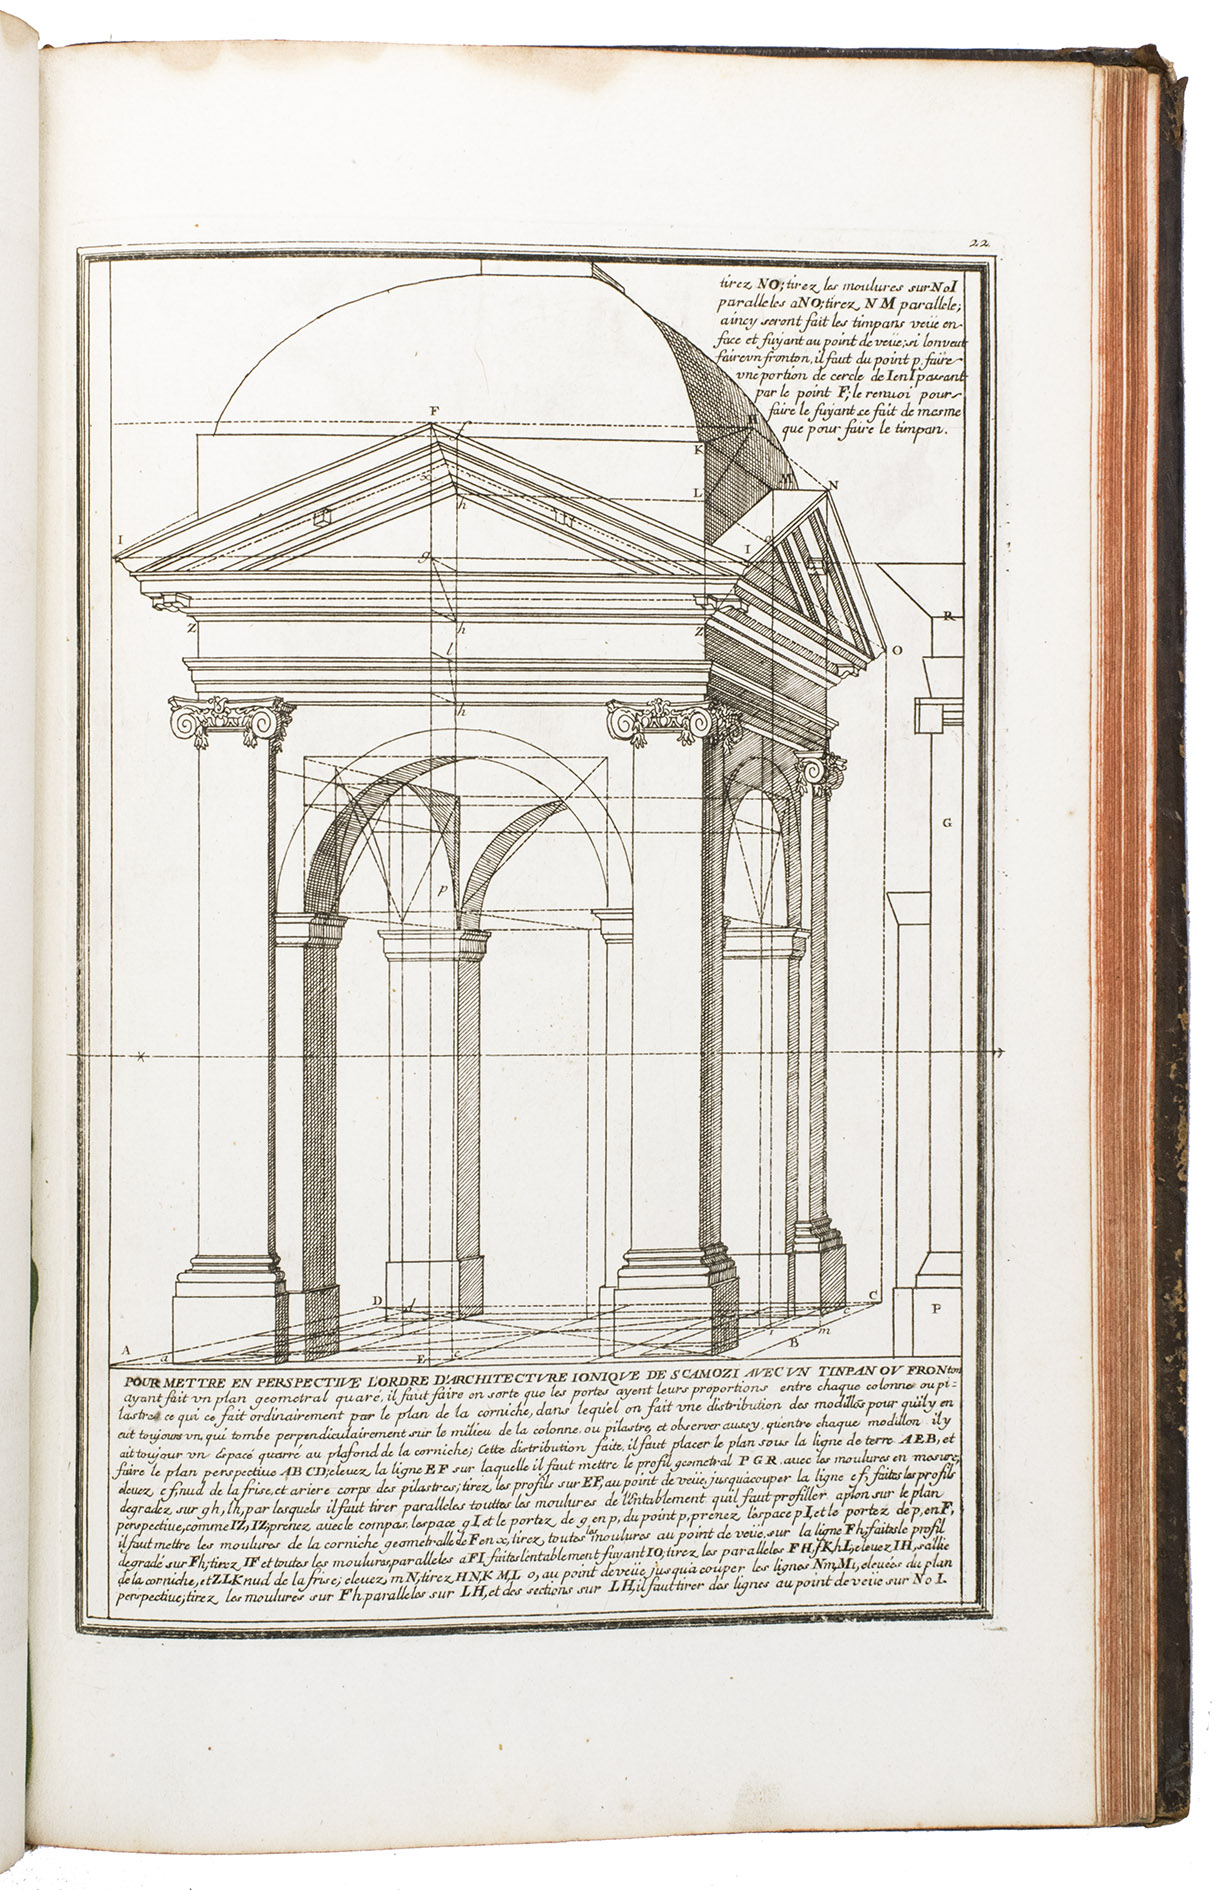 22.
tirez NO; tirez les moulures sur NoI
paralleles a NO; tirez N M parallele;
aincy seront fait les timpans veüe en
face et fuyant au point de veüe; si lon veut
faire vn fronton, il faut du point p, faire
vne portion de cercle de I en I passant
par le point F; le renuoi pour
faire le fuyant se fait de mesme
que pour faire le timpan.
F
f
H
K
x
L
M
N
h
I
I
o
g
Z
h
Z
R
l
O
h
G
p
D
d
C
c
P
A
a
E
e
i
B
m
POUR METTRE EN PERSPECTIVE L'ORDRE D'ARCHITECTVRE IONIQVE DE SCAMOZI AVEC VN TINPAN OV FRONton
ayant fait vn plan geometral quaré, il faut faire en sorte que les portes ayent leurs proportions entre chaque colonne ou pi-
lastre ce qui ce fait ordinairement par le plan de la corniche, dans lequel on fait vne distribution des modillons pour quil y en
eut toujours vn, qui tombe perpendiculairement sur le milieu de la colonne, ou pilastre, et observer aussy, qu'entre chaque modillon il y
ait toujour vn espacé quarré au plafond de la corniche; Cette distribution faite, il faut placer le plan sous la ligne de terre AEB, et
faire le plan perspectiue AB CD; eleuez la ligne EF sur laquelle il faut mettre le profil geometral P G R. auec les moulures en mesure,
eleuez e f nud de la frise, et ariere corps des pilastres; tirez les profils sur EF, au point de veüe, jusqua couper la ligne e f, faites les profils
degradez sur gh, lh, par lesquels il faut tirer paralleles touttes les moulures de l'entablement quil faut profiller aplon sur le plan
perspectiue, comme IZ, IZ; prenez auec le compas, lespace g I et le portez de g en p, du point p, prenez l'espace p I, et le portez de p, en F,
il faut mettre les moulures de la corniche geometralle de F en x, tirez toutes les moulures au point de veüe, sur la ligne F h; faites le profil
degradé sur Fh; tirez IF et toutes les moulures paralleles a FI. faites l'entablement fuyant IO; tirez les paralleles FH, fK, hL; eleuez IH, saillie
de la corniche, et ZLK nud de la frise; eleuez mN; tirez HN, K M, L o, au point de veüe jusqua couper les lignes Nm, Mi, eleuées du plan
perspectiue; tirez les moulures sur F h paralleles sur LH, et des sections sur LH, il faut tirer des lignes au point de veüe sur N o I.